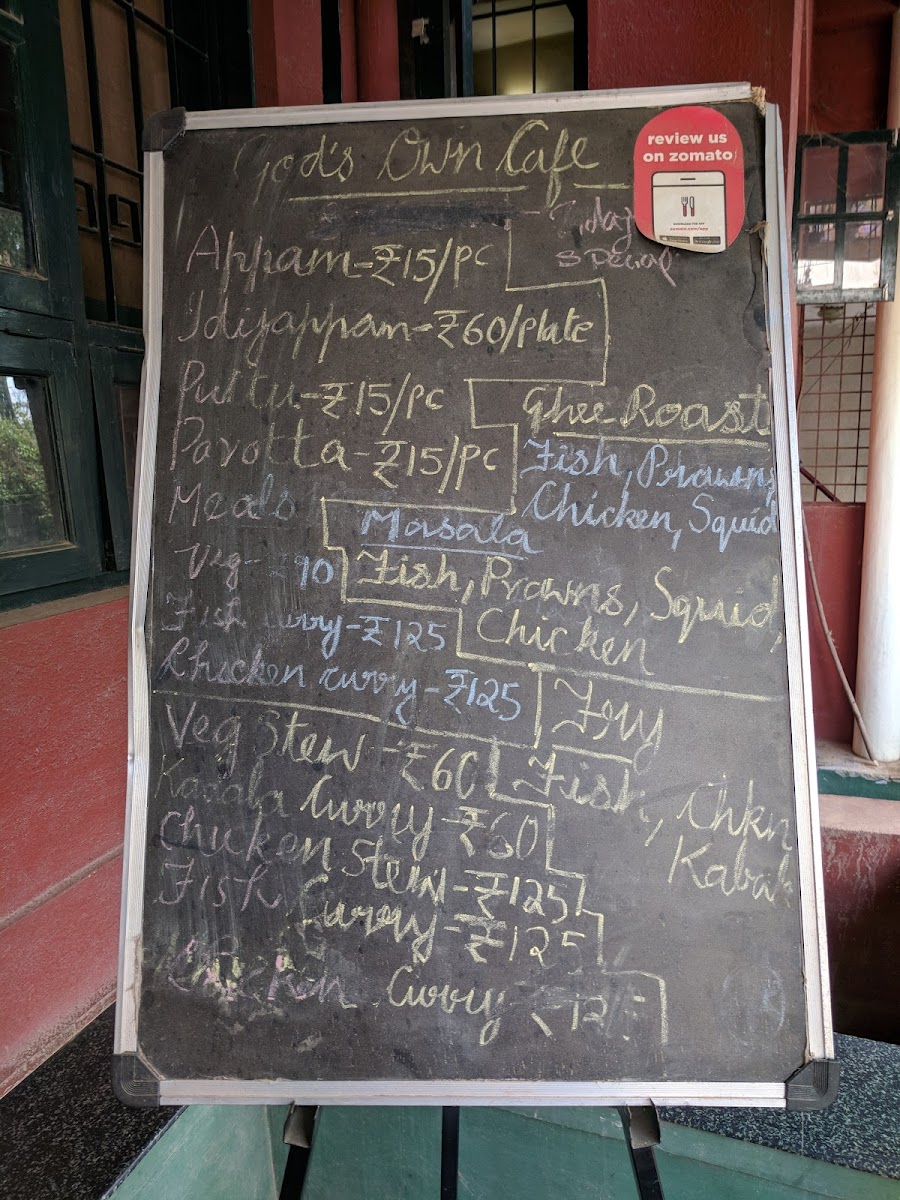 God's Own Cafe
review us
on zomato
Today
special
Appam - ₹15/pc
Idiyappam - ₹60/plate
Puttu - ₹15/pc
Parotta - ₹15/pc
Meals
Veg - ₹90
Fish curry - ₹125
Chicken curry - ₹125
Ghee Roast
Fish, Prawns,
Chicken, Squid
Masala
Fish, Prawns, Squid,
Chicken
Fry
Fish, Chkn
Kabab
Veg Stew - ₹60
Kadala Curry - ₹60
Chicken Stew - ₹125
Fish Curry - ₹125
Chicken Curry - ₹125